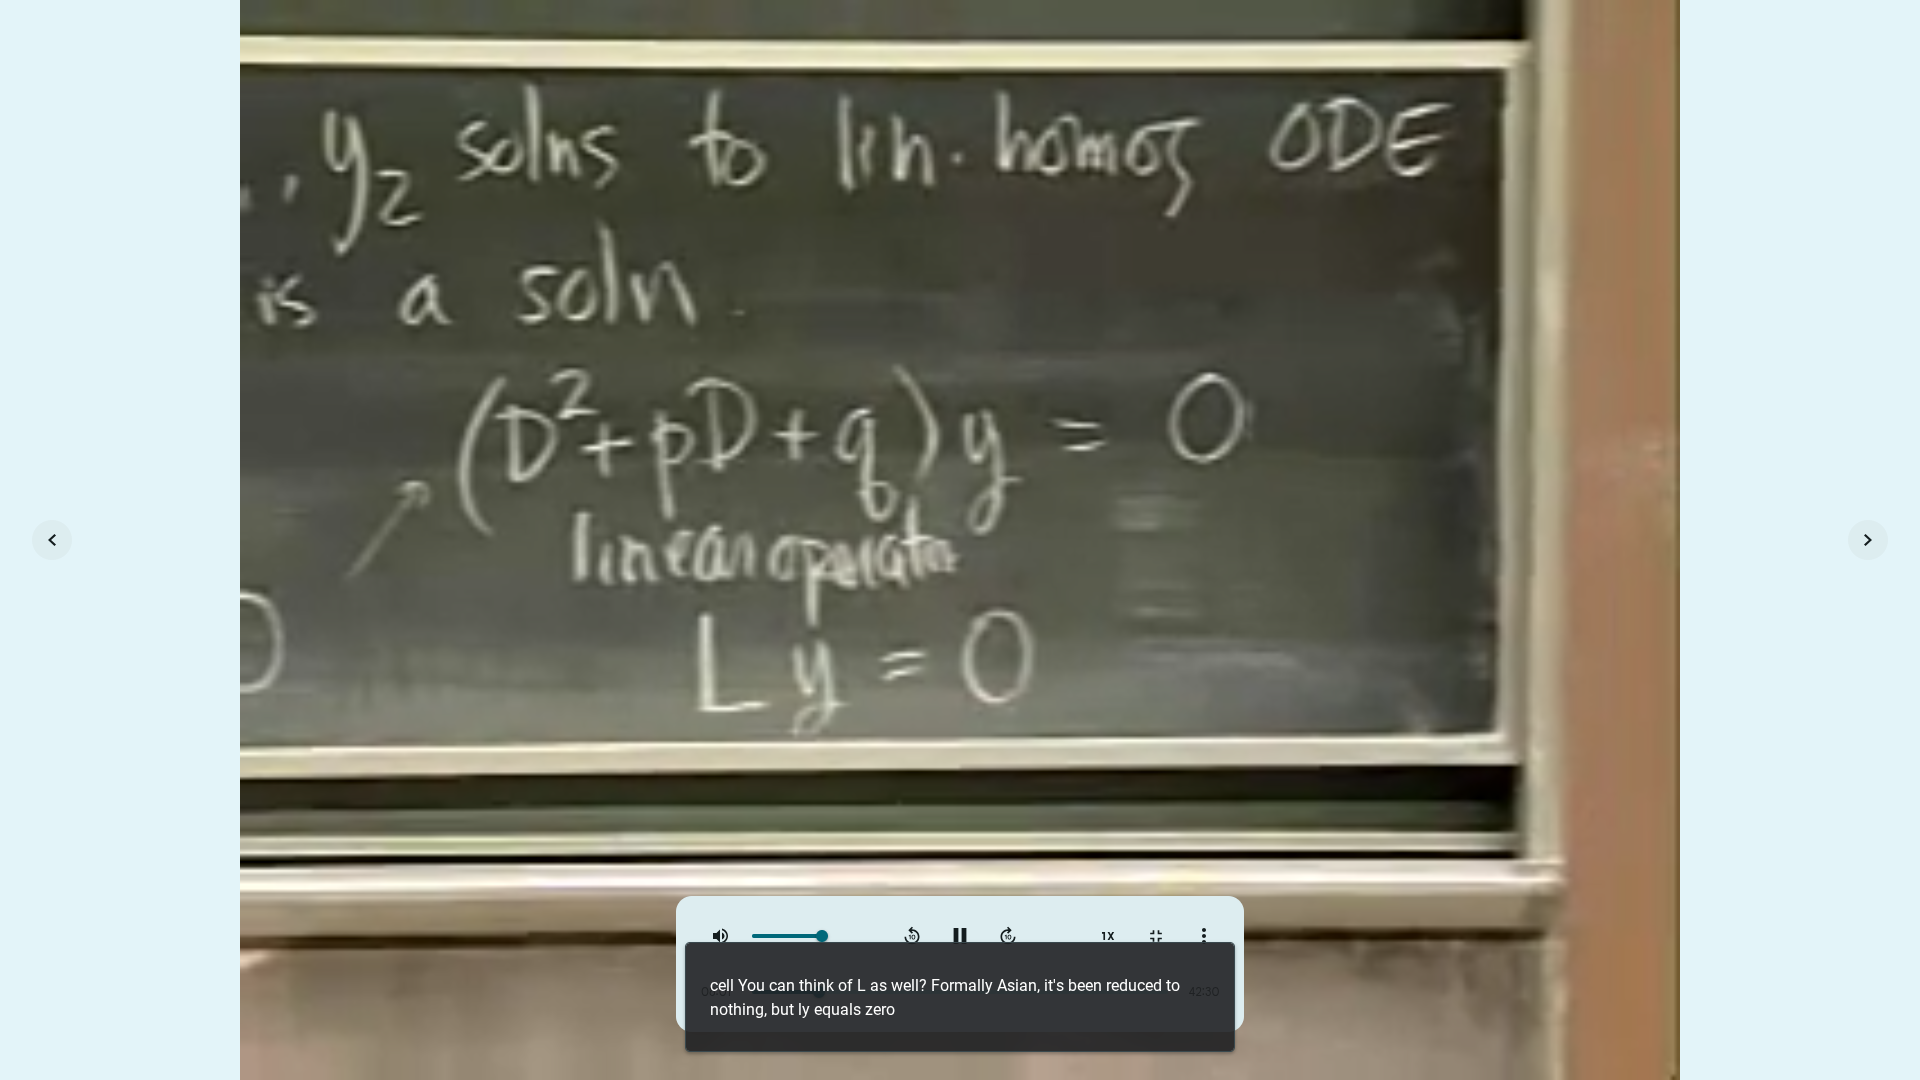 , y₂ solns to lin. homog ODE
is a soln.
(D²+pD+q)y = 0
linear operator
0
Ly = 0
10
10
1X
42:30
cell You can think of L as well? Formally Asian, it's been reduced to
nothing, but ly equals zero